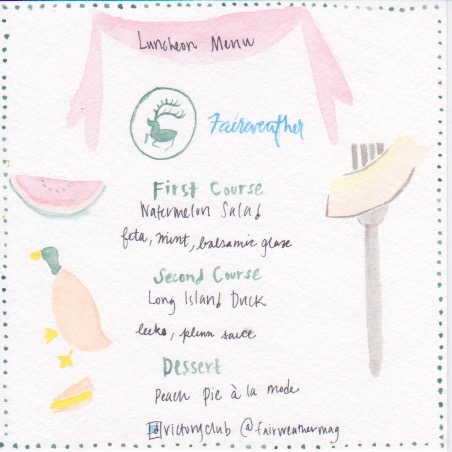 Luncheon Menu
Fairweather
First Course
Watermelon Salad
feta, mint, balsamic glaze
Second Course
Long Island Duck
leeks, plum sauce
Dessert
Peach Pie à la mode
victoryclub @fairweathermag